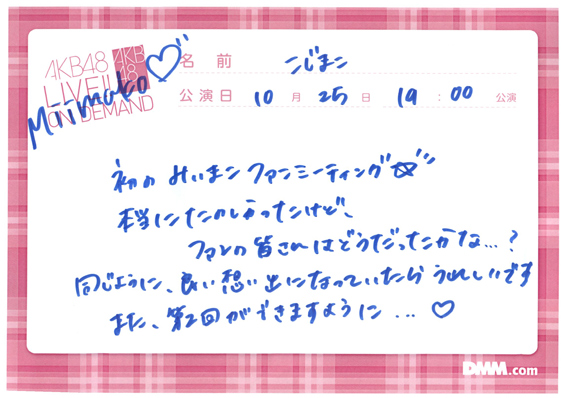 AKB48
AKB
48
LIVE!!
ON DEMAND
Miimako♡
名前 こじまこ
公演日 10月25日 19:00公演
初の みぃまこ ファンミーティング☆
本当にたのしかったけど、
ファンの皆さんはどうだったかな…?
同じように、良い想い出になっていたらうれしいです
また、第2回ができますように… ♡
DMM.com